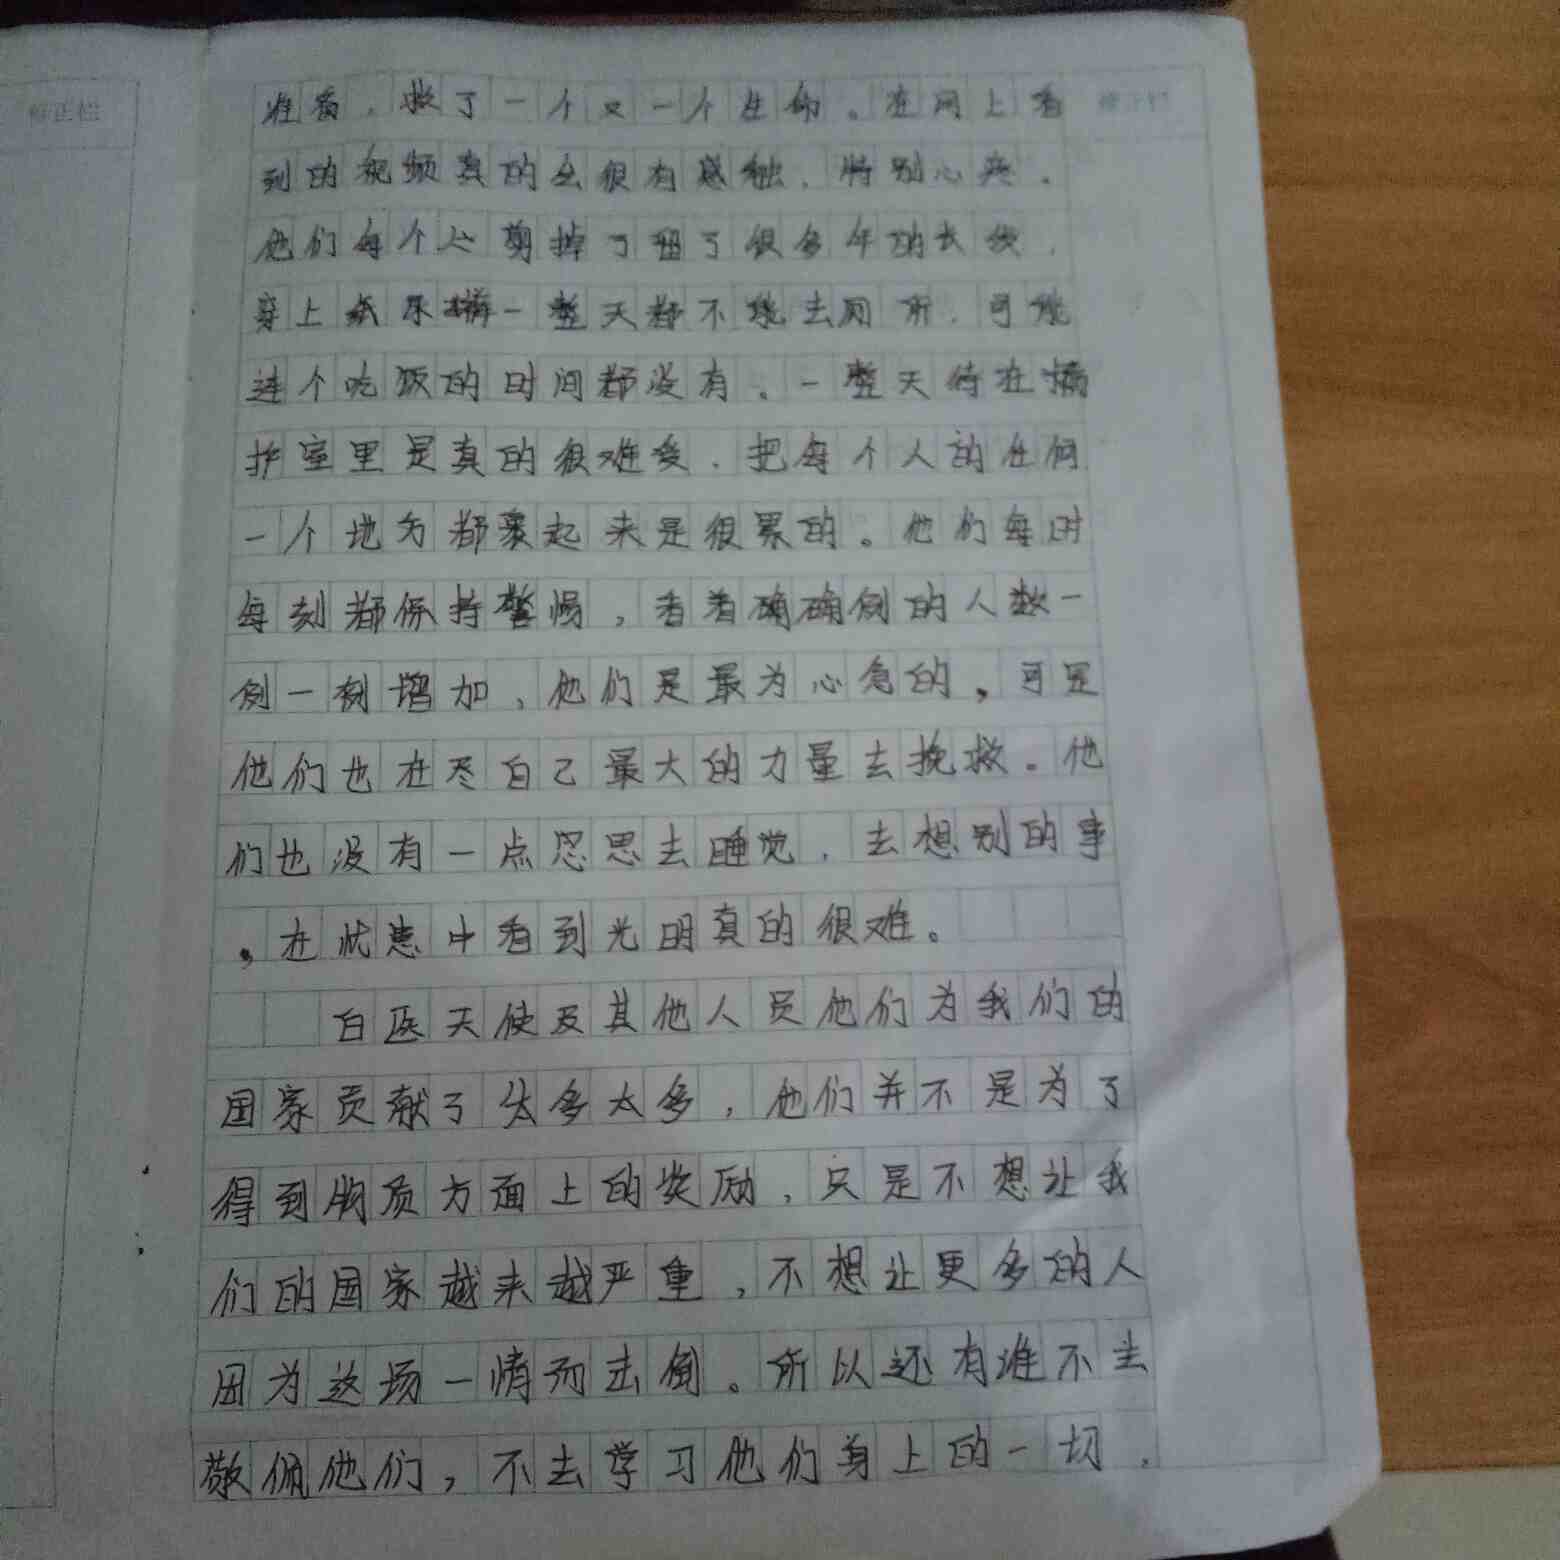 修正栏
准备，救了一个又一个生命。在网上看
到的视频真的会很有感触，特别心疼，
他们每个人剪掉了留了很多年的长发，
穿上纸尿裤一整天都不能去厕所，可能
连个吃饭的时间都没有。一整天待在
护室里是真的很难受，把每个人的任何
一个地方都裹起来是很累的。他们每时
每刻都保持警惕，看着确确例的人数一
例一例增加，他们是最为心急的，可是
他们也在尽自己最大的力量去挽救。他
们也没有一点思去睡觉，去想别的事
，在忧患中看到光明真的很难。
白医天使及其他人员他们为我们的
国家贡献了太多太多，他们并不是为了
得到物质方面上的奖励，只是不想让我
们的国家越来越严重，不想让更多的人
因为这场一情而去倒。所以还有谁不去
敬佩他们，不去学习他们身上的一切，